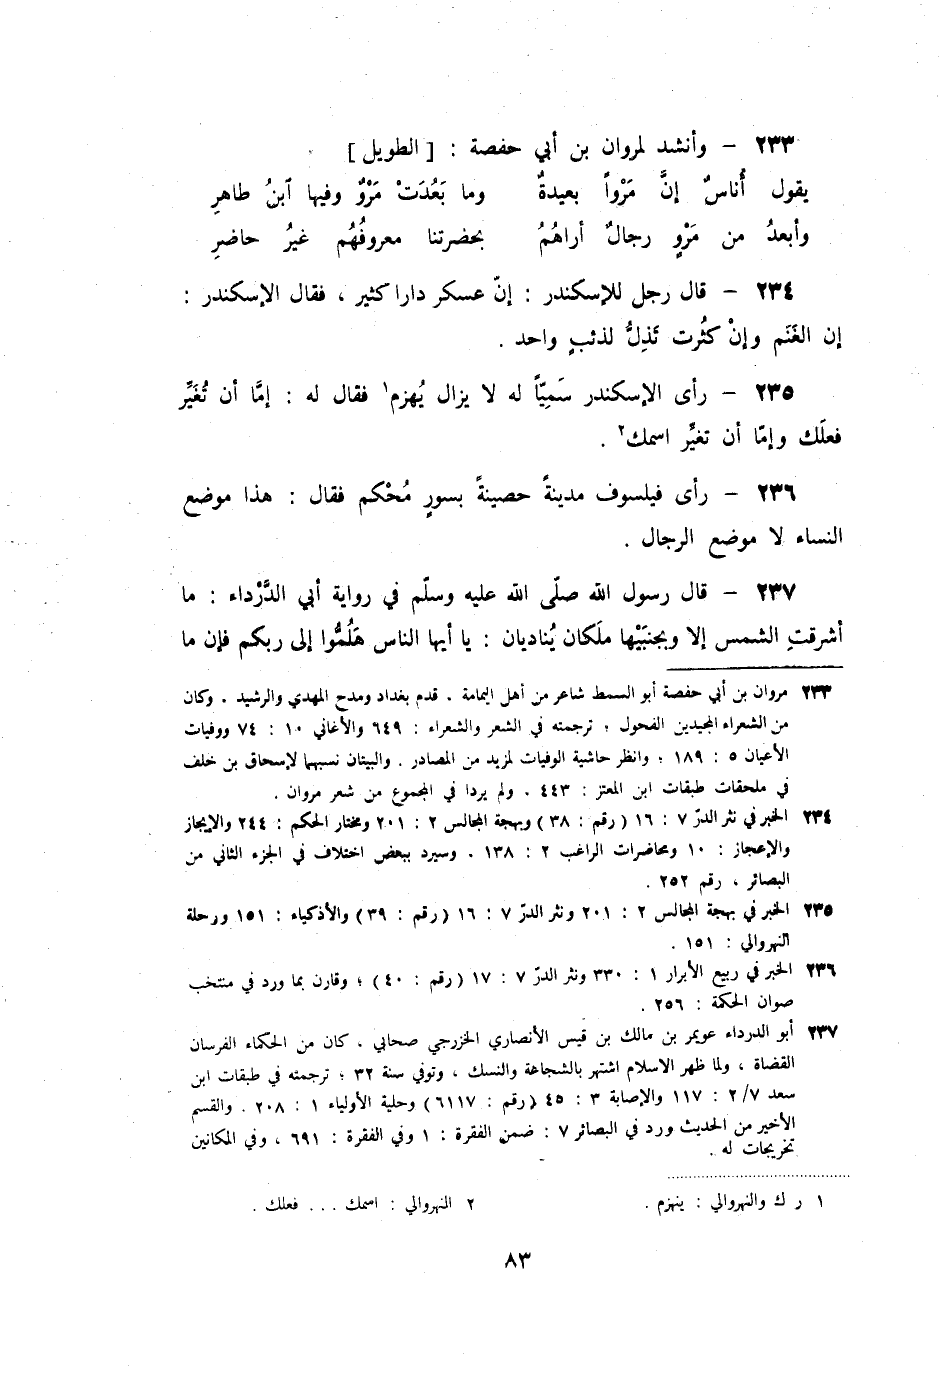 ٢٣٣ – وأنشد لمروان بن أبي حفصة : [ الطويل ]
يقول أُناسٌ إنَّ مَرْواً بعيدةٌ وما بَعُدَتْ مَرْوٌ وفيها ٱبنُ طاهرِ
وأبعدُ من مَرْوٍ رجالٌ أراهُمُ بحضرتنا معروفُهُم غيرُ حاضرِ
٢٣٤ – قال رجل للإسكندر : إنّ عسكر دارا كثير ، فقال الإسكندر :
إن الغَنَم وإنْ كثُرت تَذِلُّ لذئبٍ واحد .
٢٣٥ – رأى الإسكندر سَمِيّاً له لا يزال يُهزم١ فقال له : إمَّا أن تُغَيِّر
فعلَك وإمّا أن تغيِّر اسمك٢ .
٢٣٦ – رأى فيلسوف مدينةً حصينةً بسورٍ مُحْكم فقال : هذا موضع
النساء لا موضع الرجال .
٢٣٧ – قال رسول الله صلّى الله عليه وسلّم في رواية أبي الدَّرْداء : ما
أشرقتِ الشمس إلا وبجنبَيْها ملَكان يُناديان : يا أيها الناس هَلُمُّوا إلى ربكم فإن ما
٢٣٣ مروان بن أبي حفصة أبو السمط شاعر من أهل اليمامة . قدم بغداد ومدح المهدي والرشيد . وكان
من الشعراء المجيدين الفحول ؛ ترجمته في الشعر والشعراء : ٦٤٩ والأغاني ١٠ : ٧٤ ووفيات
الأعيان ٥ : ١٨٩ ؛ وانظر حاشية الوفيات لمزيد من المصادر . والبيتان نسبهما لإسحاق بن خلف
في ملحقات طبقات ابن المعتز : ٤٤٣ . ولم يردا في المجموع من شعر مروان .
٢٣٤ الخبر في نثر الدرّ ٧ : ١٦ ( رقم : ٣٨ ) وبهجة المجالس ٢ : ٢٠١ ومختار الحكم : ٢٤٤ والإيجاز
والإعجاز : ١٠ ومحاضرات الراغب ٢ : ١٣٨ . وسيرد ببعض اختلاف في الجزء الثاني من
البصائر ، رقم ٢٥٢ .
٢٣٥ الخبر في بهجة المجالس ٢ : ٢٠١ ونثر الدرّ ٧ : ١٦ ( رقم : ٣٩ ) والأذكياء : ١٥١ ورحلة
النهروالي : ١٥١ .
٢٣٦ الخبر في ربيع الأبرار ١ : ٣٣٠ ونثر الدرّ ٧ : ١٧ ( رقم : ٤٠ ) ؛ وقارن بما ورد في منتخب
صوان الحكمة : ٢٥٦ .
٢٣٧ أبو الدرداء عويمر بن مالك بن قيس الأنصاري الخزرجي صحابي . كان من الحكماء الفرسان
القضاة ، ولما ظهر الاسلام اشتهر بالشجاعة والنسك ، وتوفي سنة ٣٢ ؛ ترجمته في طبقات ابن
سعد ٧/٢ : ١١٧ والإصابة ٣ : ٤٥ ( رقم : ٦١١٧ ) وحلية الأولياء ١ : ٢٠٨ . والقسم
الأخير من الحديث ورد في البصائر ٧ : ضمن الفقرة : ١ وفي الفقرة : ٦٩١ ، وفي المكانين
تخريجات له .
١ ر ك والنهروالي : ينهزم . ٢ النهروالي : اسمك ... فعلك .
٨٣